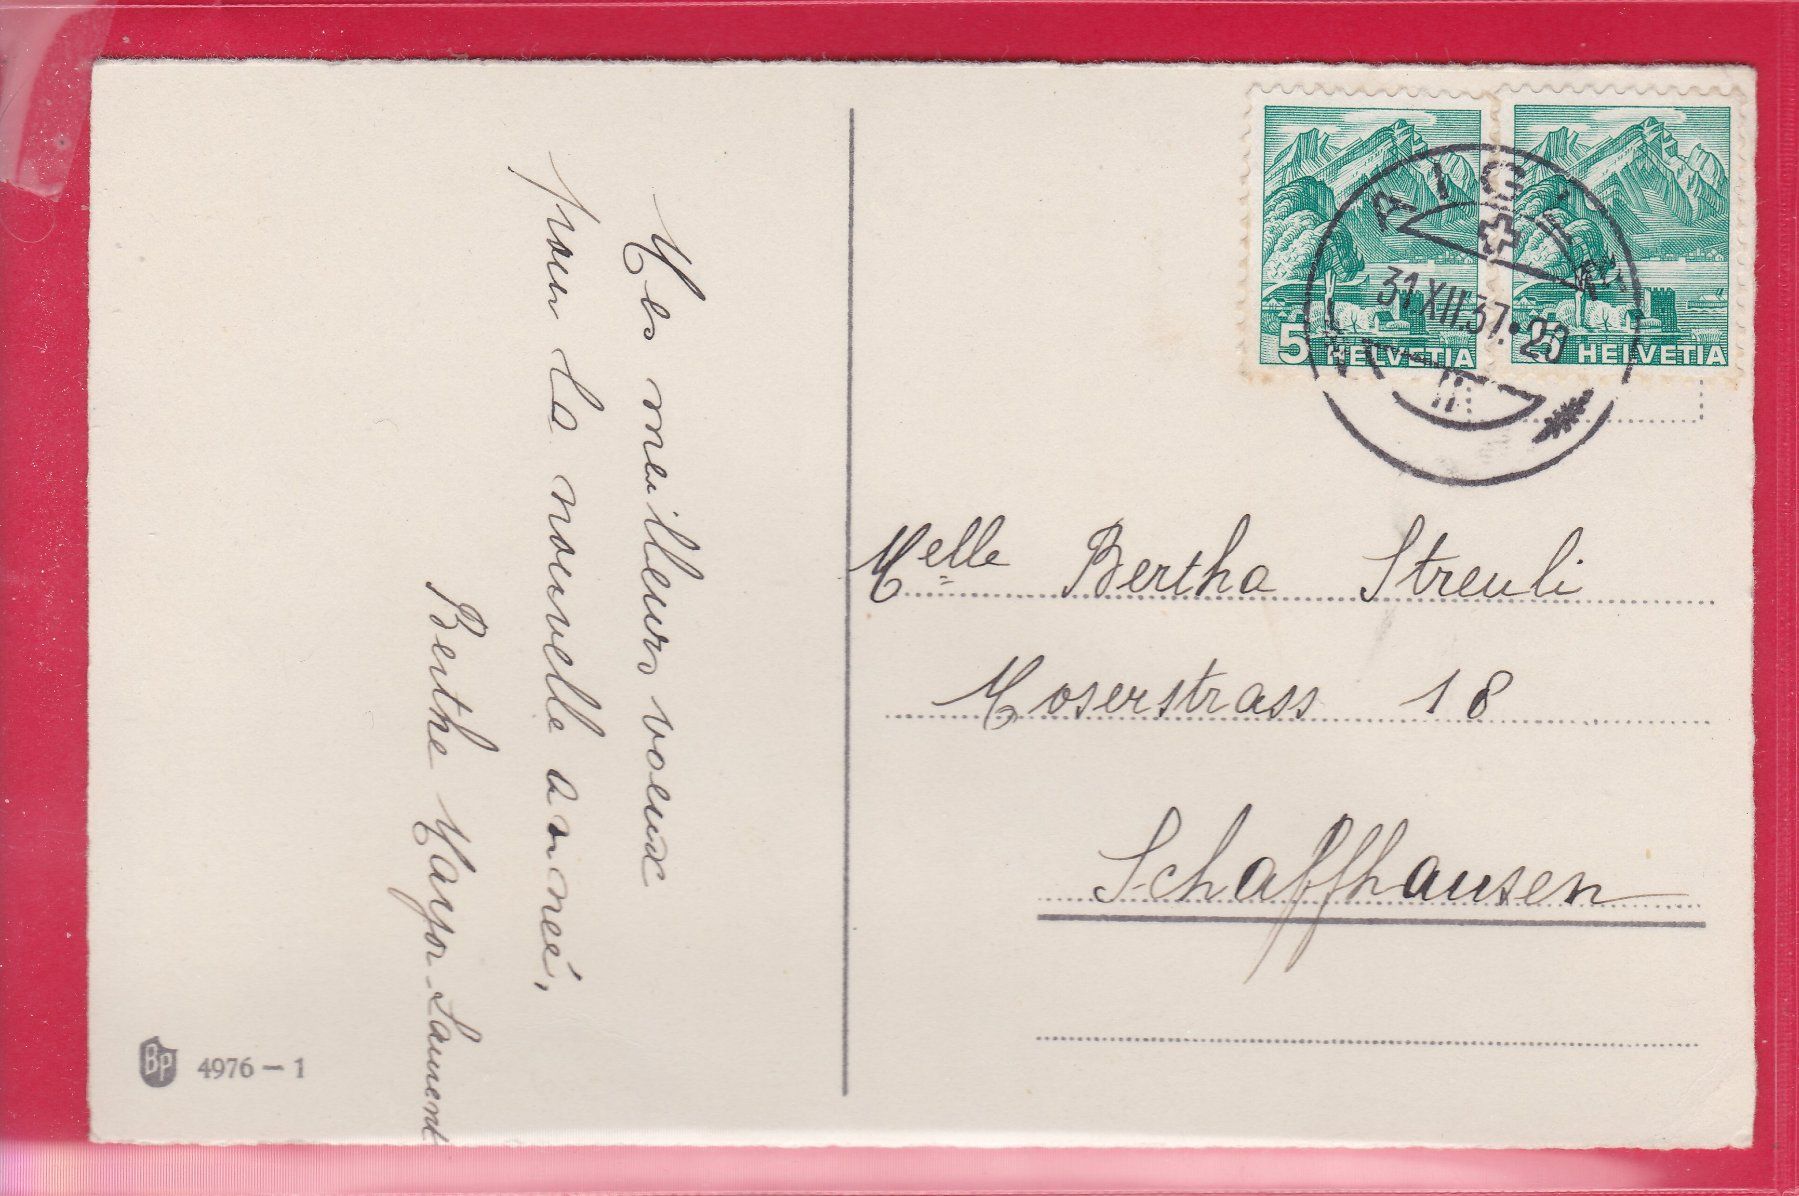 Mes meilleurs voeux
pour la nouvelle année,
Berthe Mayor-Laurent
BP 4976 – 1
5 HELVETIA
HELVETIA
AIGLE
31.XII.37.20
Melle Bertha Streuli
Moserstrass 18
Schaffhausen